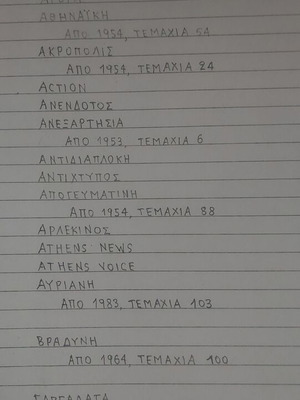 ΑΘΗΝΑΪΚΗ
ΑΠΟ 1954, ΤΕΜΑΧΙΑ 54
ΑΚΡΟΠΟΛΙΣ
ΑΠΟ 1954, ΤΕΜΑΧΙΑ 24
ACTION
ΑΝΕΝΔΟΤΟΣ
ΑΝΕΞΑΡΤΗΣΙΑ
ΑΠΟ 1953, ΤΕΜΑΧΙΑ 6
ΑΝΤΙΔΙΑΠΛΟΚΗ
ΑΝΤΙΧΤΥΠΟΣ
ΑΠΟΓΕΥΜΑΤΙΝΗ
ΑΠΟ 1954, ΤΕΜΑΧΙΑ 88
ΑΡΛΕΚΙΝΟΣ
ATHENS NEWS
ATHENS VOICE
ΑΥΡΙΑΝΗ
ΑΠΟ 1983, ΤΕΜΑΧΙΑ 103
ΒΡΑΔΥΝΗ
ΑΠΟ 1964, ΤΕΜΑΧΙΑ 100